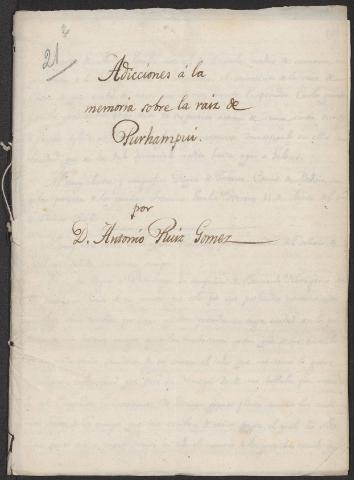 21
Adicciones á la
memoria sobre la raiz de
Purhampui.
por
D. Antonio Ruiz Gomez